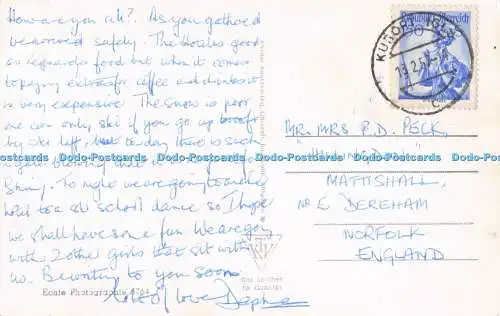 How are you all?. As you gathered
we arrived safely. The Hotel is good
as regards food but when it comes
to paying extras for coffee and drinks it
is very expensive. The snow is poor
one can only ski if you go up by
ski lift, but to day there is such
a
Shiny. To night we are going to another
hotel to a ski school dance so I hope
we shall have some fun. We are going
with 2 other girls that sit with
us. Be writing to you soon
lots of love Daphne
Echte Photographie 8764
KURORT IGLS
Republik Österreich
MR. MRS P.D. PECK,
MATTISHALL,
NR E DEREHAM
NORFOLK
ENGLAND
Dodo-Postcards Dodo-Postcards Dodo-Postcards Dodo-Postcards Dodo-Postcards Dodo-Postcards